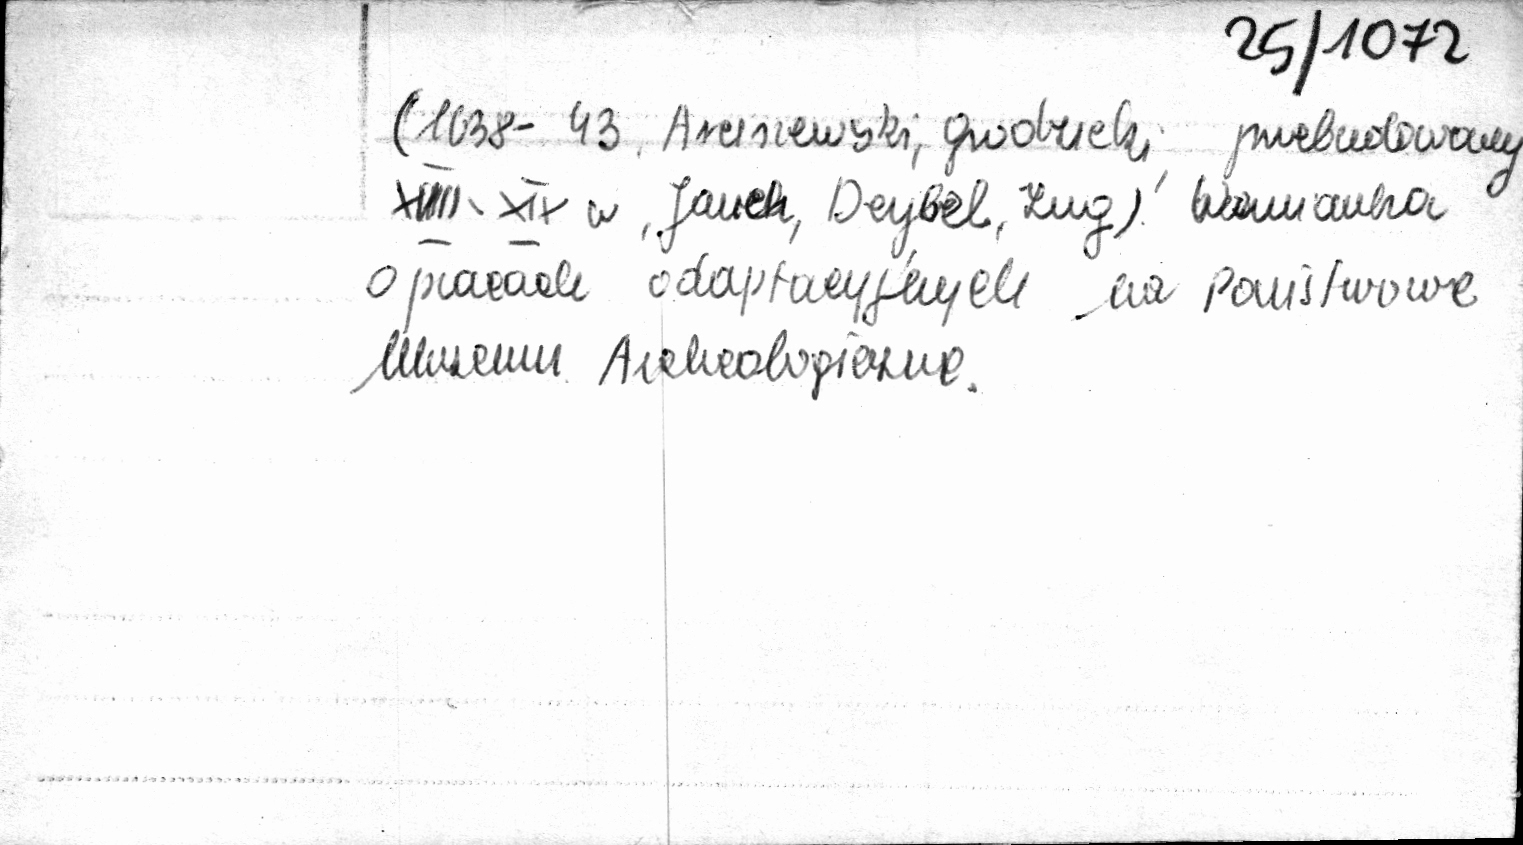 25/1072
(1638-43, Arciszewski, Grodzicki, przebudowany
XVIII-XIX w, Jauch, Deybel, Zug). Wzmianka
o pracach adaptacyjnych na Państwowe
Muzeum Archeologiczne.